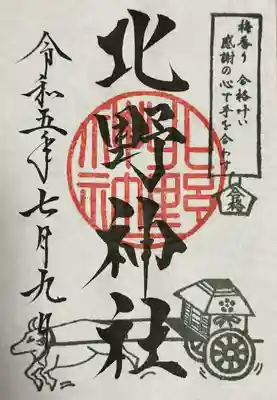 梅香り 合格叶い
感謝の心で手を合す
合格
北野神社
北野神社
令和五年七月九日